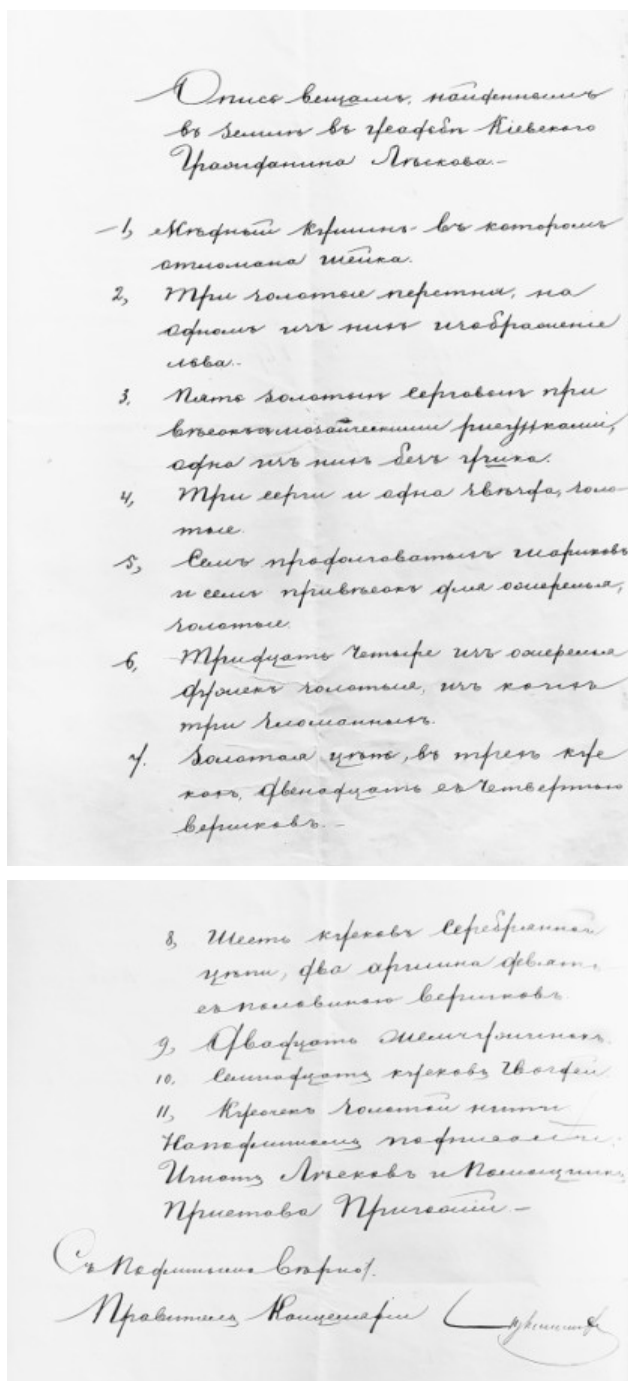 Опись вещамъ, найденнымъ
въ земли въ усадьбѣ Кіевскаго
Гражданина Лѣскова.-
1, Мѣдный кувшинъ въ которомъ
отломана шейка.
2, Три золотые перстня, на
одномъ изъ нихъ изображеніе
льва.
3. Пять золотыхъ серговыхъ при
вѣсокъ съ мозаическими рисунками,
одна изъ нихъ безъ ушка.
4, Три серги и одна звѣзда, золо
тые.
5, Семь продолговатыхъ шариковъ
и семь привѣсокъ для ожерелья,
золотые.
6, Тридцать четыре изъ ожерелья
дужекъ золотыхъ, изъ коихъ
три зломанныхъ.
7. Золотая цѣпь, въ трехъ кус
кахъ, двенадцать съ четвертью
вершковъ.-
8, Шесть кусковъ серебрянной
цѣпи, два аршина девять
съ половиною вершковъ.
9, Двадцать жемчужинокъ.
10. Семнадцать кусковъ гвоздей.
11, Кусочекъ золотой нити
На подлинномъ подписались:
Игнатъ Лѣсковъ и Помощникъ
Пристава
Съ подлиннымъ вѣрно:
Правитель Канцеляріи